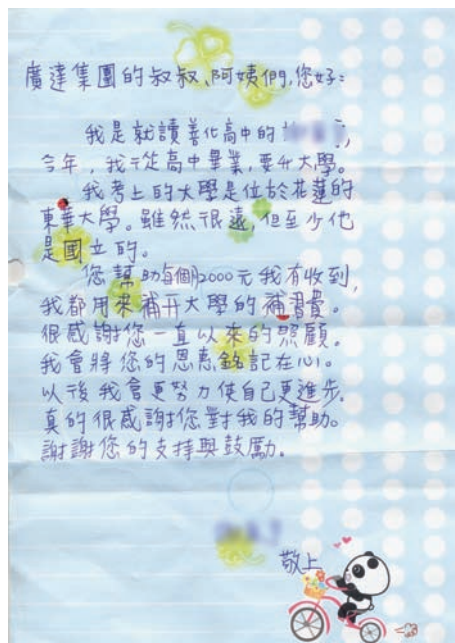 廣達集團的叔叔、阿姨們,您好:
我是就讀善化高中的
今年,我才從高中畢業,要升大學。
我考上的大學是位於花蓮的
東華大學。雖然很遠,但至少他
是國立的。
您幫助每個月2000元我有收到,
我都用來補升大學的補習費。
很感謝您一直以來的照顧。
我會將您的恩惠銘記在心。
以後我會更努力使自己更進步。
真的很感謝您對我的幫助。
謝謝您的支持與鼓勵。
敬上